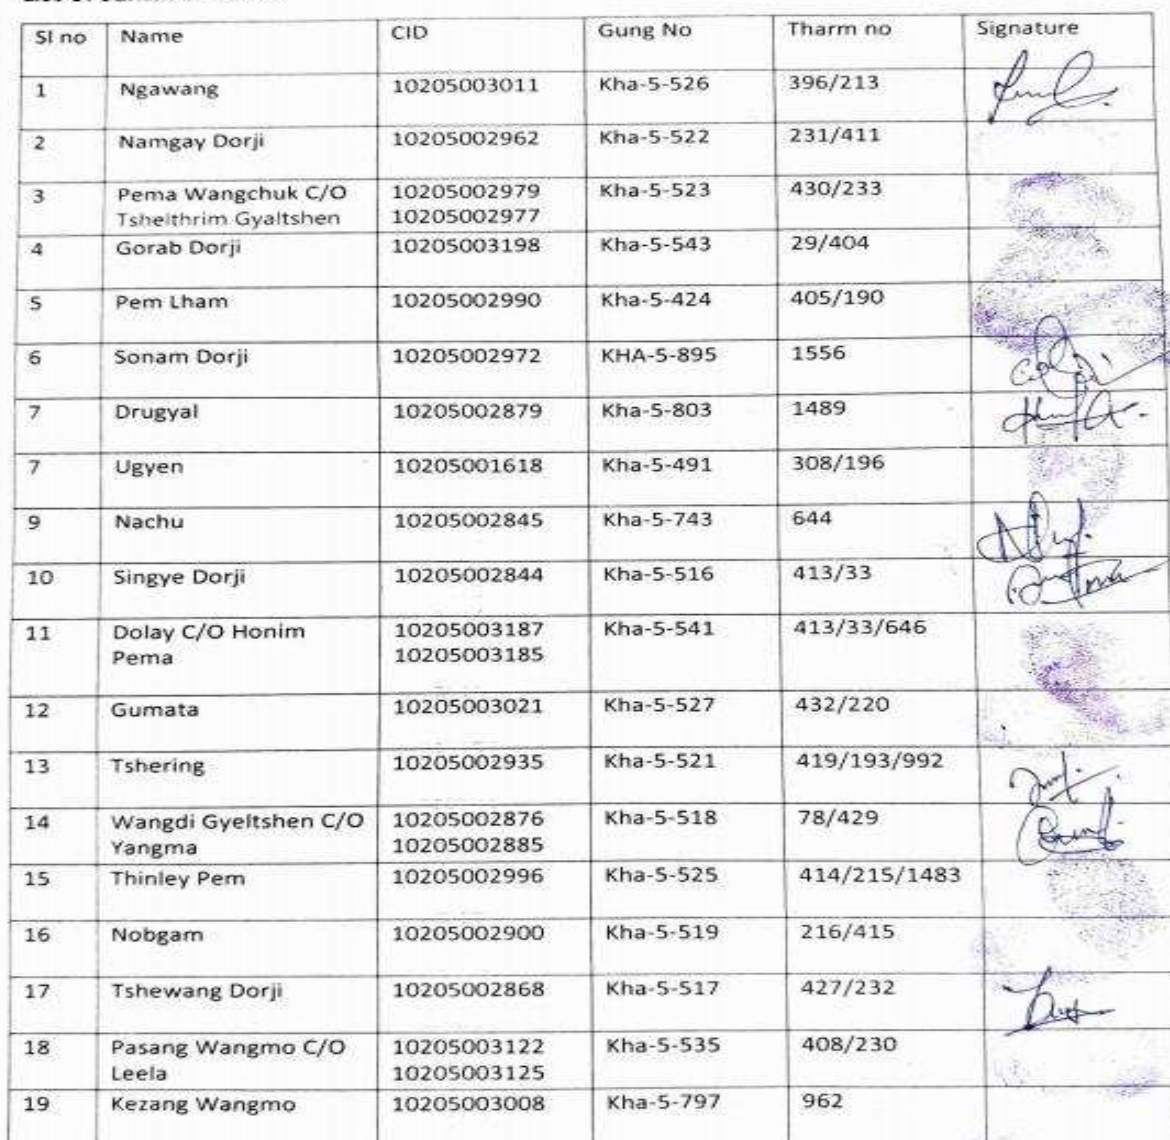 Sl no Name CID Gung No Tharm no Signature
1 Ngawang 10205003011 Kha-5-526 396/213
2 Namgay Dorji 10205002962 Kha-5-522 231/411
3 Pema Wangchuk C/O 10205002979 Kha-5-523 430/233
Tshelthrim Gyaltshen 10205002977
4 Gorab Dorji 10205003198 Kha-5-543 29/404
5 Pem Lham 10205002990 Kha-5-424 405/190
6 Sonam Dorji 10205002972 KHA-5-895 1556
7 Drugyal 10205002879 Kha-5-803 1489
7 Ugyen 10205001618 Kha-5-491 308/196
9 Nachu 10205002845 Kha-5-743 644
10 Singye Dorji 10205002844 Kha-5-516 413/33
11 Dolay C/O Honim 10205003187 Kha-5-541 413/33/646
Pema 10205003185
12 Gumata 10205003021 Kha-5-527 432/220
13 Tshering 10205002935 Kha-5-521 419/193/992
14 Wangdi Gyeltshen C/O 10205002876 Kha-5-518 78/429
Yangma 10205002885
15 Thinley Pem 10205002996 Kha-5-525 414/215/1483
16 Nobgam 10205002900 Kha-5-519 216/415
17 Tshewang Dorji 10205002868 Kha-5-517 427/232
18 Pasang Wangmo C/O 10205003122 Kha-5-535 408/230
Leela 10205003125
19 Kezang Wangmo 10205003008 Kha-5-797 962